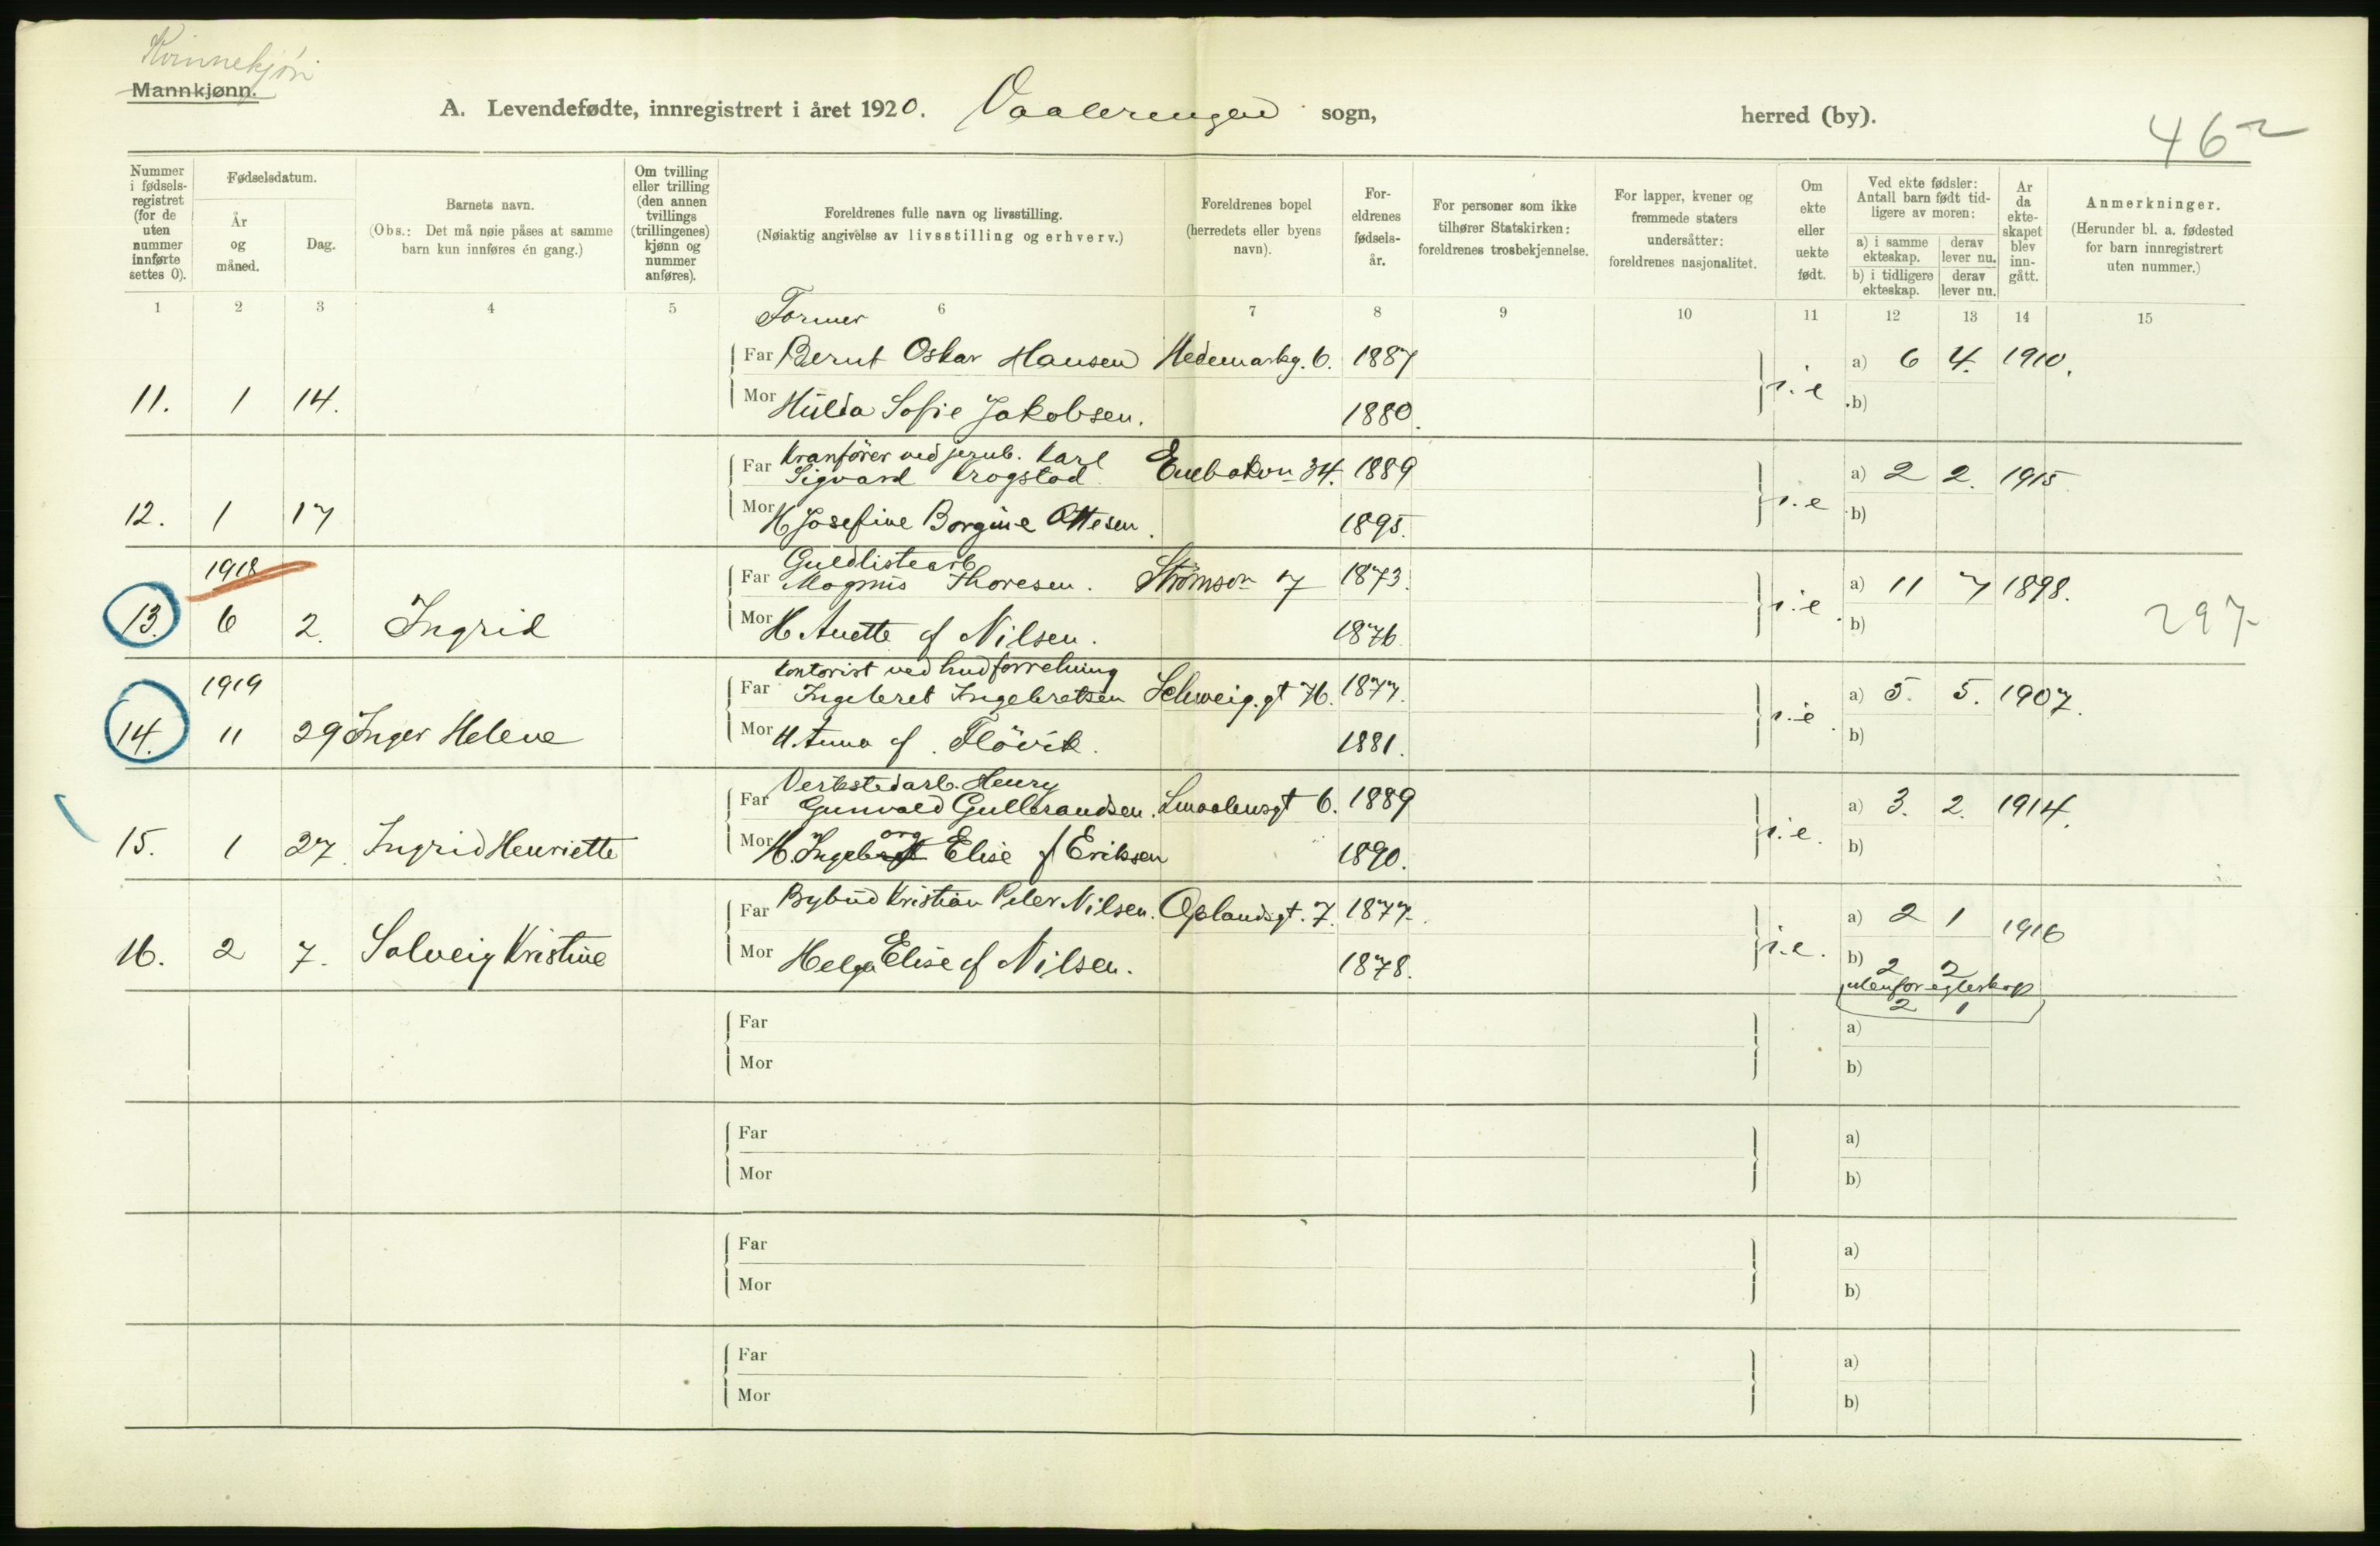 Kvinnekjøn
Mannkjønn.
A. Levendefødte, innregistrert i året 1920. Vaalerengen sogn, herred (by).
462
Nummer i fødsels-registret (for de uten nummer innførte settes 0).
Fødselsdatum.
År og måned.
Dag.
Barnets navn.
(Obs.: Det må nøie påses at samme barn kun innføres én gang.)
Om tvilling eller trilling (den annen tvillings (trillingenes) kjønn og nummer anføres).
Foreldrenes fulle navn og livsstilling.
(Nøiaktig angivelse av livsstilling og erhverv.)
Foreldrenes bopel (herredets eller byens navn).
For-eldrenes fødsels-år.
For personer som ikke tilhører Statskirken: foreldrenes trosbekjennelse.
For lapper, kvener og fremmede staters undersåtter: foreldrenes nasjonalitet.
Om ekte eller uekte født.
Ved ekte fødsler: Antall barn født tid-ligere av moren:
a) i samme ekteskap. derav lever nu.
b) i tidligere ekteskap. derav lever nu.
År da ekte-skapet blev inn-gått.
Anmerkninger.
(Herunder bl. a. fødested for barn innregistrert uten nummer.)
1 2 3 4 5 6 7 8 9 10 11 12 13 14 15
Former
Far Bernt Oskar Hansen Hedemarkg. 6. 1887 a) 6 4. 1910.
11. 1 14. Mor Hulda Sofie Jakobsen. 1880. e b)
Kranfører ved jernb. Karl
Far Sigvard Krogstad Enebakvn 34. 1889 a) 2 2. 1915
12. 1 17 Mor H Josefine Borgine Ottesen. 1895. e b)
1918 Guldlistearb
Far Magnus Thoresen. Strømsvn 7 1873. a) 11 7 1898.
13. 6 2. Ingrid Mor H Anette f Nilsen. 1876. e b) 297
1919 Kontorist ved hudforretning
Far Ingebret Ingebretsen Schweig.gt 76. 1877. a) 5. 5. 1907.
14. 11 29 Inger Helene Mor H. Anna f. Flövik. 1881. e b)
Verkstedarb. Henry
Far Gunvald Gulbrandsen. Smaalensgt 6. 1889 a) 3. 2. 1914.
15. 1 27. Ingrid Henriette Mor H. Ingeborg Elise f Eriksen 1890. e. b)
Far Bybud Kristian Peter Nilsen. Oplandsgt. 7. 1877. a) 2 1 1916
16. 2 7. Solveig Kristine Mor Helga Elise f Nilsen. 1878. e. b) 2 2
utenfor egteskap
2 1
Far a)
Mor b)
Far a)
Mor b)
Far a)
Mor b)
Far a)
Mor b)